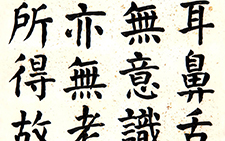 耳鼻舌
無意識
亦無老
所得故